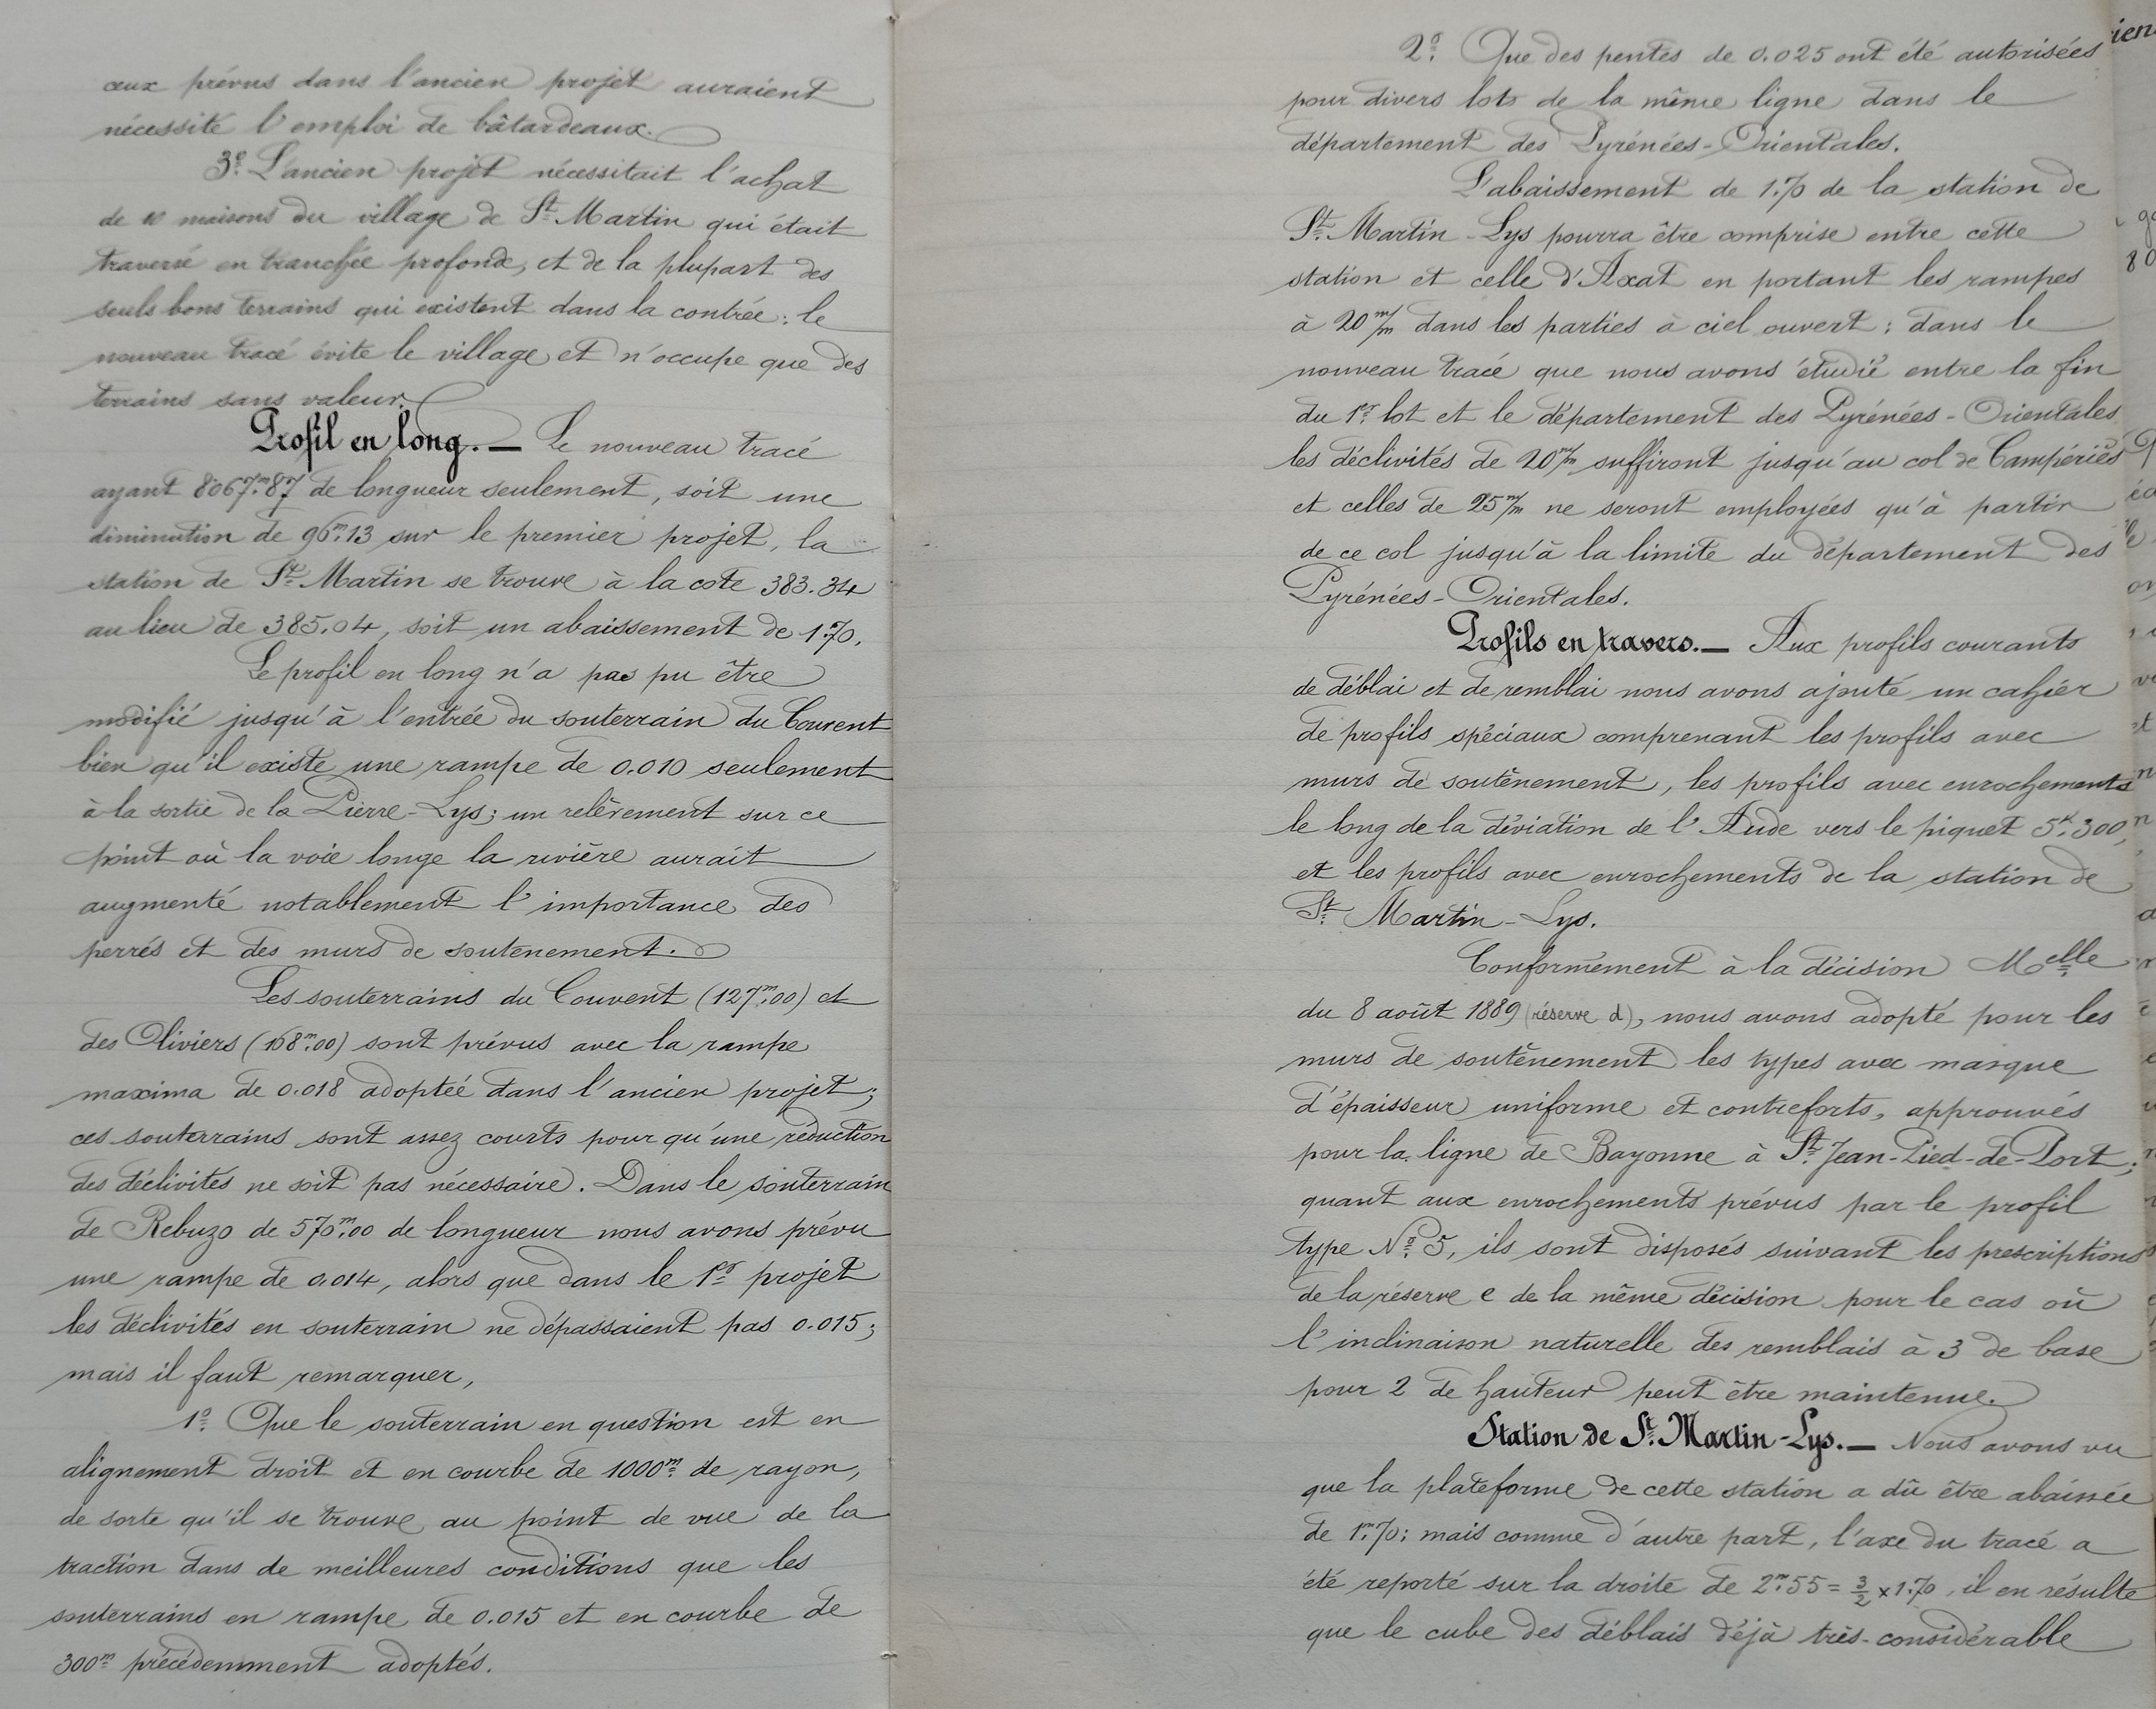 ceux prévus dans l'ancien projet auraient
nécessité l'emploi de bâtardeaux.
3º. L'ancien projet nécessitait l'achat
de 10 maisons du village de St. Martin qui était
traversé en tranchée profonde, et de la plupart des
seuls bons terrains qui existent dans la contrée: le
nouveau tracé évite le village et n'occupe que des
terrains sans valeur.
Profil en long. — Le nouveau tracé
ayant 8067m.87 de longueur seulement, soit une
diminution de 96m.13 sur le premier projet, la
station de St. Martin se trouve à la cote 383.34
au lieu de 385.04, soit un abaissement de 1.70.
Le profil en long n'a pas pu être
modifié jusqu'à l'entrée du souterrain du Couvent
bien qu'il existe une rampe de 0.010 seulement
à la sortie de la Pierre-Lys; un relèvement sur ce
point où la voie longe la rivière aurait
augmenté notablement l'importance des
perrés et des murs de soutenement.
Les souterrains du Couvent (127m.00) et
des Oliviers (168m.00) sont prévus avec la rampe
maxima de 0.018 adoptée dans l'ancien projet;
ces souterrains sont assez courts pour qu'une réduction
des déclivités ne soit pas nécessaire. Dans le souterrain
de Rebuzo de 570m.00 de longueur nous avons prévu
une rampe de 0.014, alors que dans le 1er projet
les déclivités en souterrain ne dépassaient pas 0.015;
mais il faut remarquer,
1º. Que le souterrain en question est en
alignement droit et en courbe de 1000m. de rayon,
de sorte qu'il se trouve au point de vue de la
traction dans de meilleures conditions que les
souterrains en rampe de 0.015 et en courbe de
300m. précédemment adoptés.
2º. Que des pentes de 0.025 ont été autorisées
pour divers lots de la même ligne dans le
département des Pyrénées-Orientales.
L'abaissement de 1.70 de la station de
St. Martin-Lys pourra être comprise entre cette
station et celle d'Axat en portant les rampes
à 20 m/m dans les parties à ciel ouvert; dans le
nouveau tracé que nous avons étudié entre la fin
du 1er lot et le département des Pyrénées-Orientales
les déclivités de 20 m/m suffiront jusqu'au col de Campériès
et celles de 25 m/m ne seront employées qu'à partir
de ce col jusqu'à la limite du département des
Pyrénées-Orientales.
Profils en travers. — Aux profils courants
de déblai et de remblai nous avons ajouté un cahier
de profils spéciaux comprenant les profils avec
murs de soutènement, les profils avec enrochements
le long de la déviation de l'Aude vers le piquet 5k.300,
et les profils avec enrochements de la station de
St. Martin-Lys.
Conformément à la décision Melle
du 8 août 1889 (réserve d), nous avons adopté pour les
murs de soutènement les types avec masque
d'épaisseur uniforme et contreforts, approuvés
pour la ligne de Bayonne à St. Jean-Pied-de-Port;
quant aux enrochements prévus par le profil
type Nº. 5, ils sont disposés suivant les prescriptions
de la réserve e de la même décision pour le cas où
l'inclinaison naturelle des remblais à 3 de base
pour 2 de hauteur peut être maintenue.
Station de St. Martin-Lys. — Nous avons vu
que la plateforme de cette station a dû être abaissée
de 1m.70; mais comme d'autre part, l'axe du tracé a
été reporté sur la droite de 2m.55 = 3/2 x 1.70, il en résulte
que le cube des déblais déjà très-considérable